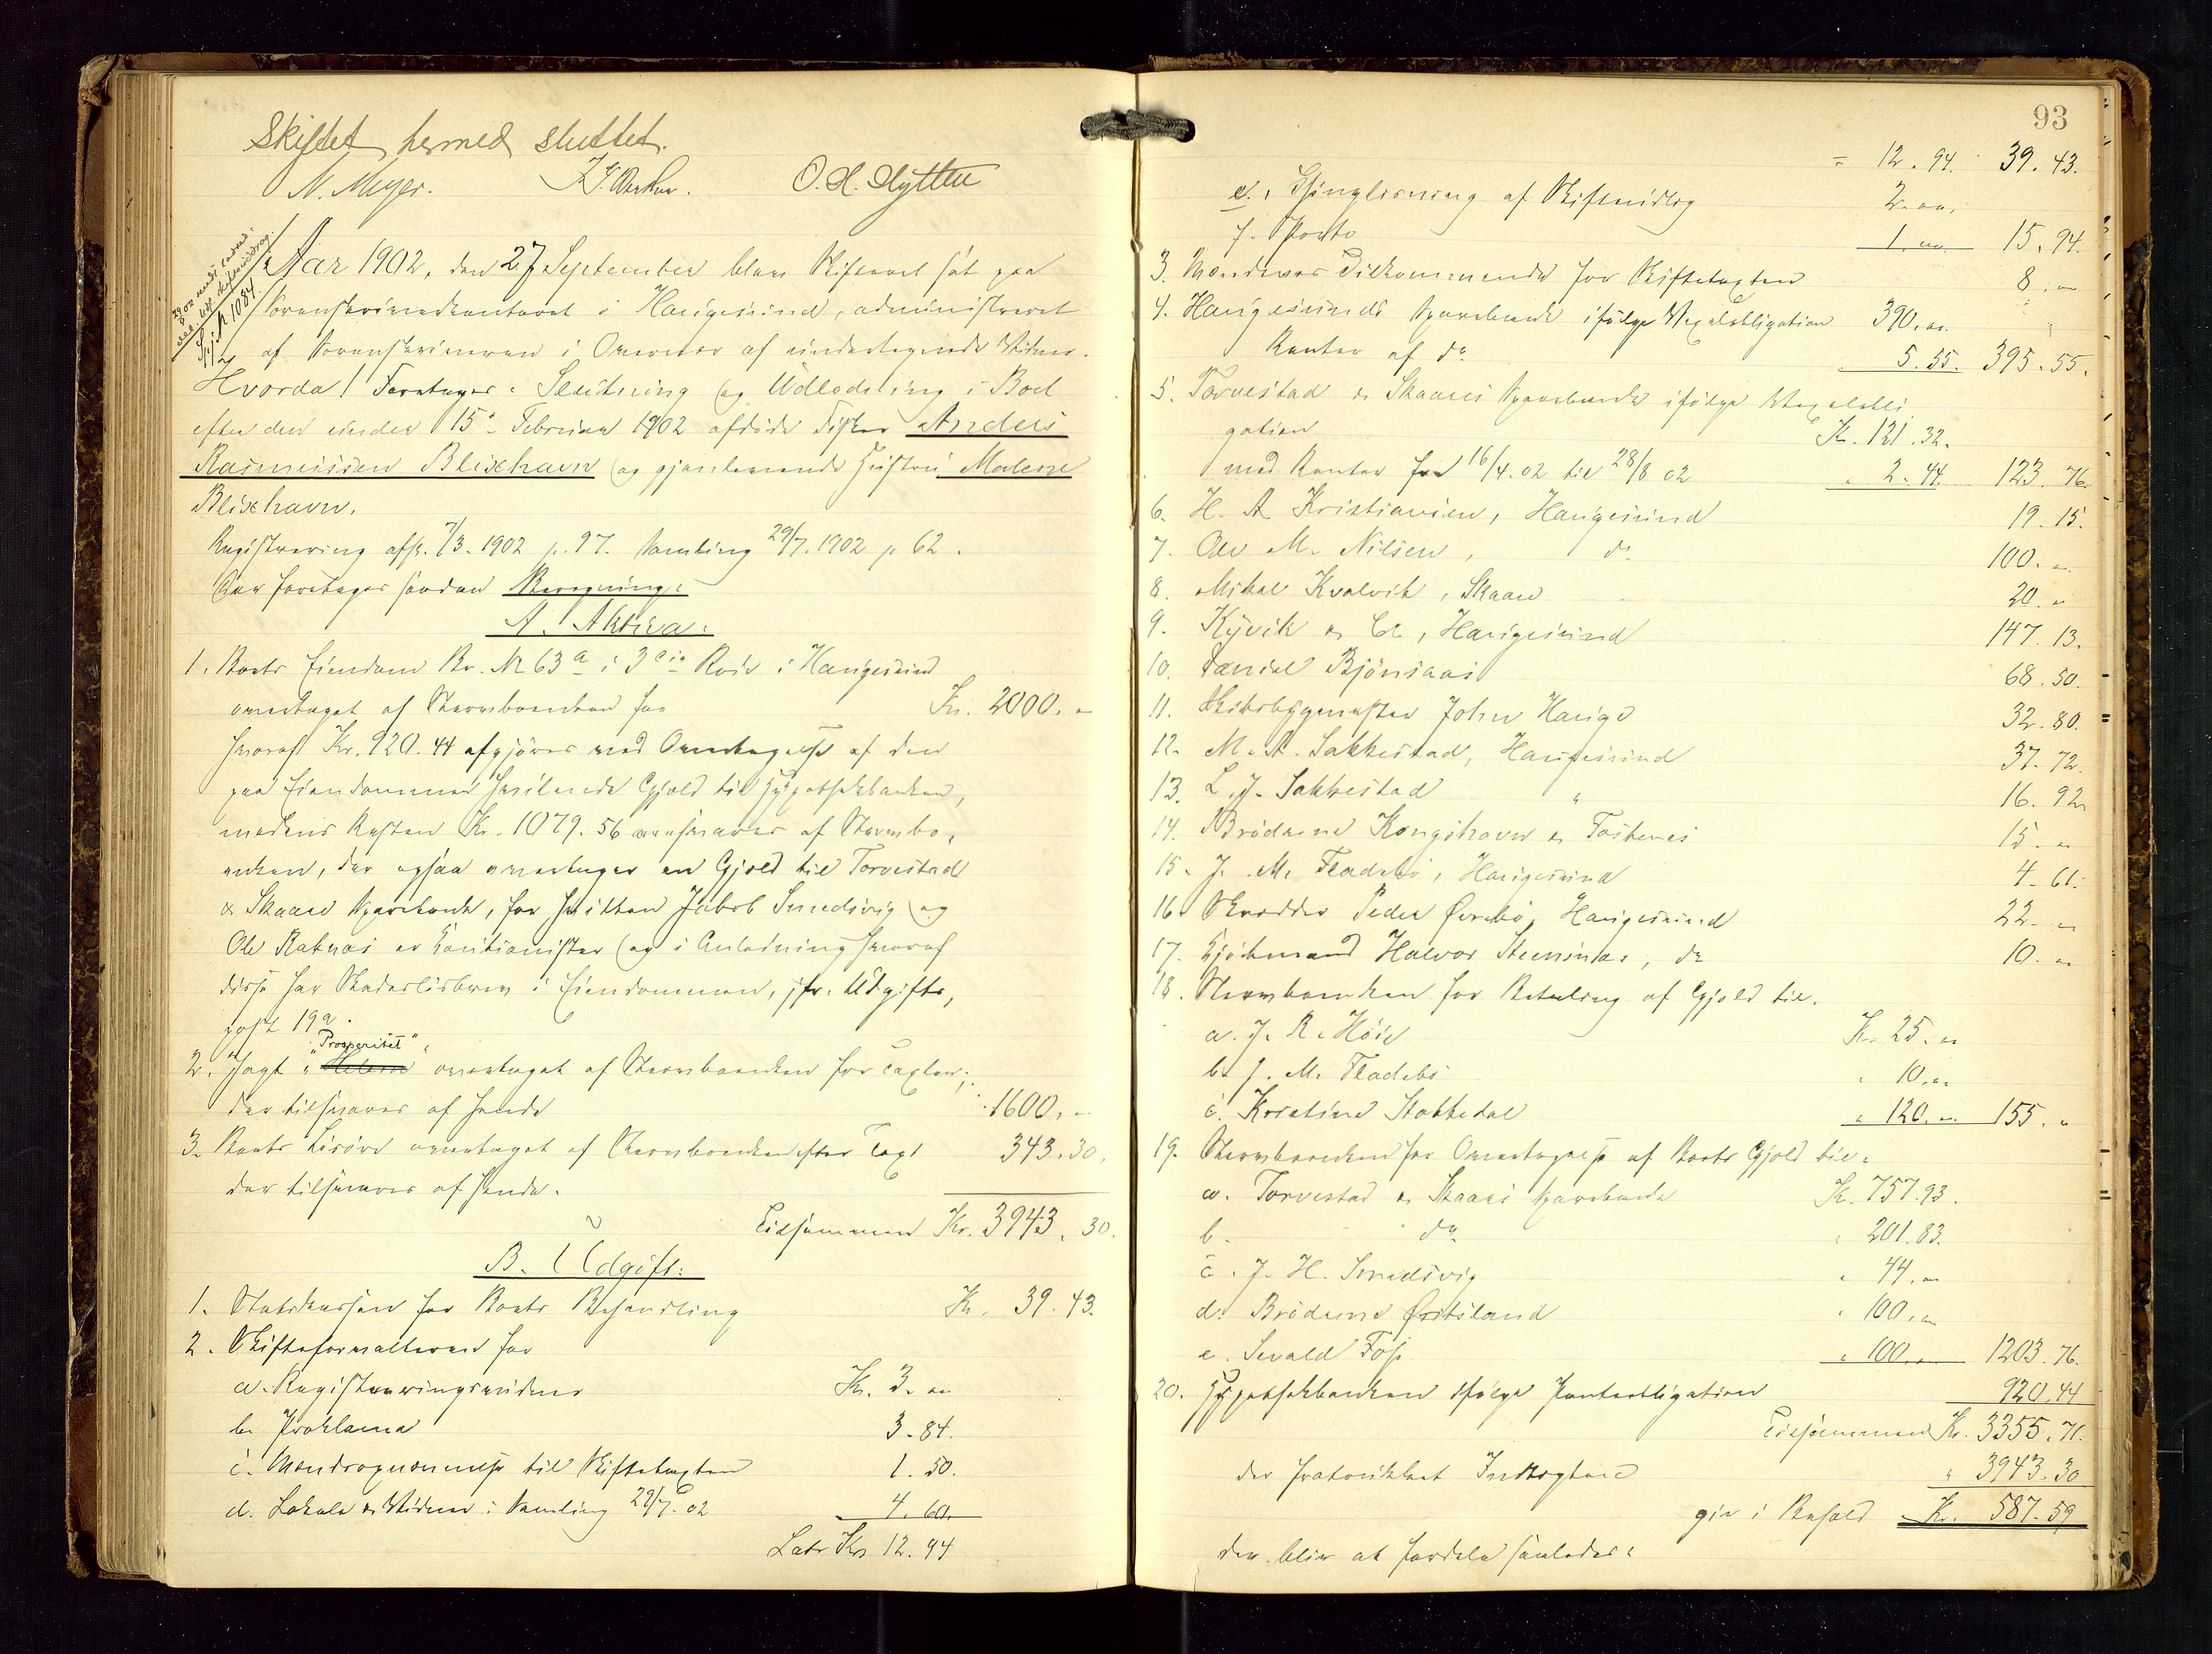 Skiftet hermed sluttet.
N. Meyer. O. H. Hytten
No 1084.
Aar 1902, den 27 September blev Skifteret sat paa
Sorenskriverkontoret i Haugesund, administreret
af Sorenskriveren i Overvær af undertegnede Vidner.
Hvorda! Foretages: Slutning og Udlodning i Boet
efter den under 15de Februar 1902 afdøde Fisker Anders
Rasmussen Blixhavn og gjenlevende Hustru Malene
Blixhavn.
Registrering afh. 7/3. 1902 p. 97. Samling 29/7. 1902 p 62.
Der foretages saadan Beregning:
A. Aktiva.
1. Boets Eiendom Br. No 63a i 3die Rode i Haugesund
overtaget af Stervboenken for Kr. 2000. "
hvoraf Kr. 920.44 afgjöres med Overtagelse af den
paa Eiendommen hvilende Gjæld til Hypothekbanken,
medens Resten Kr. 1079.56 tilsvares af Stervbo-
enken, der ogsaa overtager en Gjæld til Torvestad
& Skaare Sparebank, for hvilken Jakob Smedsvig og
Ole Raknæs er Kautionister og i Anledning hvoraf
disse har Skadeslösbrev i Eiendommen, jfr. Udgifts,
post 19a.
"Prosperitet"
2. Jagt "Helene" overtaget af Stervboenken for Taxten;
der tilsvares af hende 1600. "
3. Boets Lösöre overtaget af Stervboenken efter Taxt 343.30.
der tilsvares af hende.
Tilsammen Kr. 3943.30.
B. Udgift:
1. Statskassen for Boets Behandling Kr. 39.43.
2. Skifteforvalteren for
a. Registreringsvidner Kr. 3. "
b. Proklama 3.84.
c. Mændsopnævnelse til Skiftetaxten 1.50.
d. Lokale & Vidner i Samling 29/7.02 4.60.
Lats Kr 12.94
93
= 12.94. 39.43.
e. Thinglæsning af Skifteudlæg 2. "
f. Porto 1. " 15.94.
3. Mændenes Tilkommende for Skiftetaxten 8. "
4. Haugesunds Sparebank ifölge Vexelobligation 390. "
Renter af do 5.55. 395.55.
5. Torvestad & Skaares Sparebank ifölge Vexelobli
gation Kr. 121.32.
med Renter fra 16/4.02 til 28/8 02 " 2.44. 123.76
6. H. A. Kristiansen, Haugesund 19.15.
7. Ole M. Nilsen, do 100. "
8. Mikal Kvalvik, Skaare 20. "
9. Kyvik & Co, Haugesund 147.13.
10. Daniel Bjönsaas 68.50.
11. Skibsbygmester John Hauge 32.80.
12. M. A. Sakkestad, Haugesund 37.72.
13. L. J. Sakkestad " 16.92
14. Brödrene Kongshavn & Fosenes 15. "
15. J. M. Fladebö, Haugesund 4.61.
16. Skrædder Peder Övrebö, Haugesund 22. "
17. Kjöbmand Halvor Steensnæs, do 10. "
18. Stervboenken for Betaling af Gjæld til.
a. J. R. Höie Kr. 25. "
b. J. M. Fladebö " 10. "
c. Kristine Stakkedal " 120. " 155. "
19. Stervboenken for Overtagelse af Boets Gjæld til:
a. Torvestad & Skaares Sparebank Kr. 757.93.
b. do " 201.83.
c. J. H. Smedsvig " 44. "
d. Brödrene Östtsland " 100. "
e. Sevald Fos " 100. " 1203.76.
20. Hypothekbanken ifölge Panteobligation 920.44
Tilsammen Kr. 3355.71.
der fratrukket Indtægterne " 3943.30
giv i Behold Kr. 587.59
der bliv at fordele saaledes: